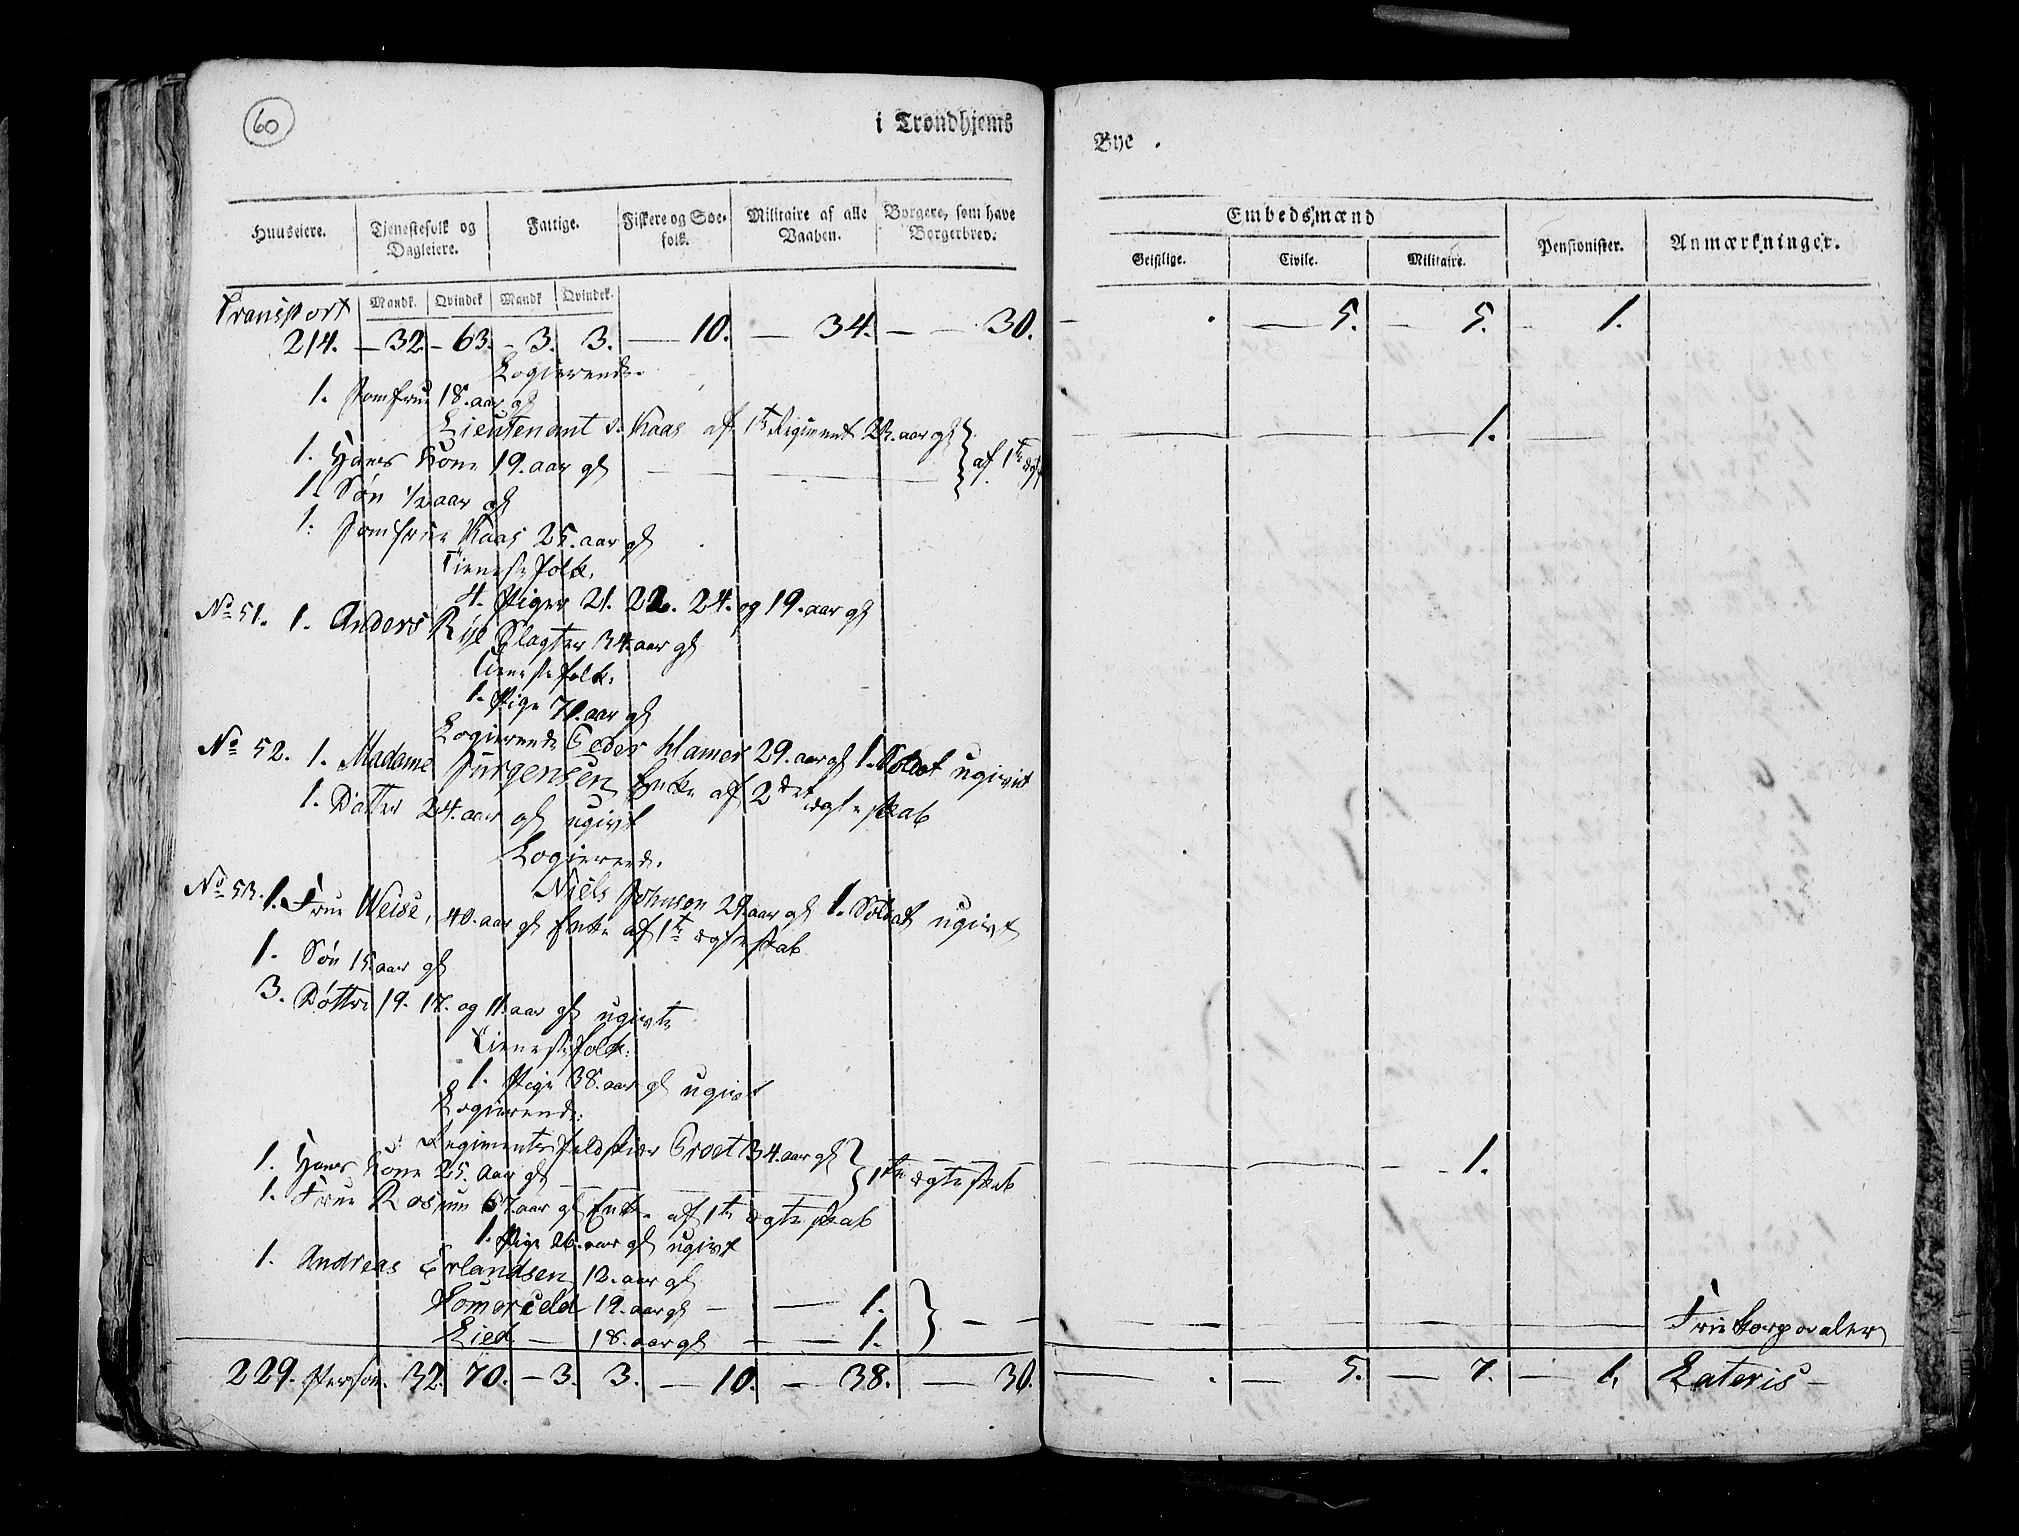 60
i Trondhjems
Bye .
Huuseiere. Tjenestefolk og Dagleiere. Fattige. Fiskere og Søefolk. Militaire af alle Vaaben. Borgere, som have Borgerbrev.
Embedsmænd
Geistlige. Civile. Militaire. Pensionister. Anmærkninger.
Mandk. Qvindek Mandk Qvindek.
Transport
214. — 32. — 63. — 3. 3. — 10. — 34. — — 30. — . — 5. — 5. — 1.
Logierende.
1. Jomfrue 18. aar gl
Lieutenant v. Kaas af 1te Regiment 22. aar gl — — 1.
1. Hans Kone 19. aar gl — — } af 1te ægt
1. Søn 1/2 aar gl
1. Jomfrue Kaas 25. aar gl
Tienestefolk.
4. Piger 21. 22. 24. og 19. aar gl
No 51. 1. Anders Rÿe Slagter 34. aar gl
Tienestefolk.
1. Pige 70. aar gl
Logierende Peder Hamer 29. aar gl 1. Soldat ugivt
No 52. 1. Madame Jürgensen Enke af 2det ægteskab
1. Datter 24. aar gl ugivt
Logierende.
Niels Johnsen 29. aar gl 1. Soldat ugivt
No 53. 1. Frue Weise, 40. aar gl Enke af 1te ægteskab
1. Søn 15. aar gl
3. Døttre 19. 17. og 11. aar gl ugivte
Tienestefolk.
1. Pige 38. aar gl ugivt
Logierende.
Regiments feldskier Groet 34. aar gl — — 1.
1. Hans Kone 25. aar gl — — } 1te ægteskab
1. Frue 67. aar gl Enke af 1te ægteskab
1. Pige 26. aar gl ugivt
1. Andreas Erlandsen 12. aar gl
19. aar gl — — 1. } — —
Lied — 18. aar gl — — 1. Frie korporaler
229. Person. 32. 70. — 3. 3. — 10. — 38. — 30. — . — 5. — 7. — 1. Lateris —